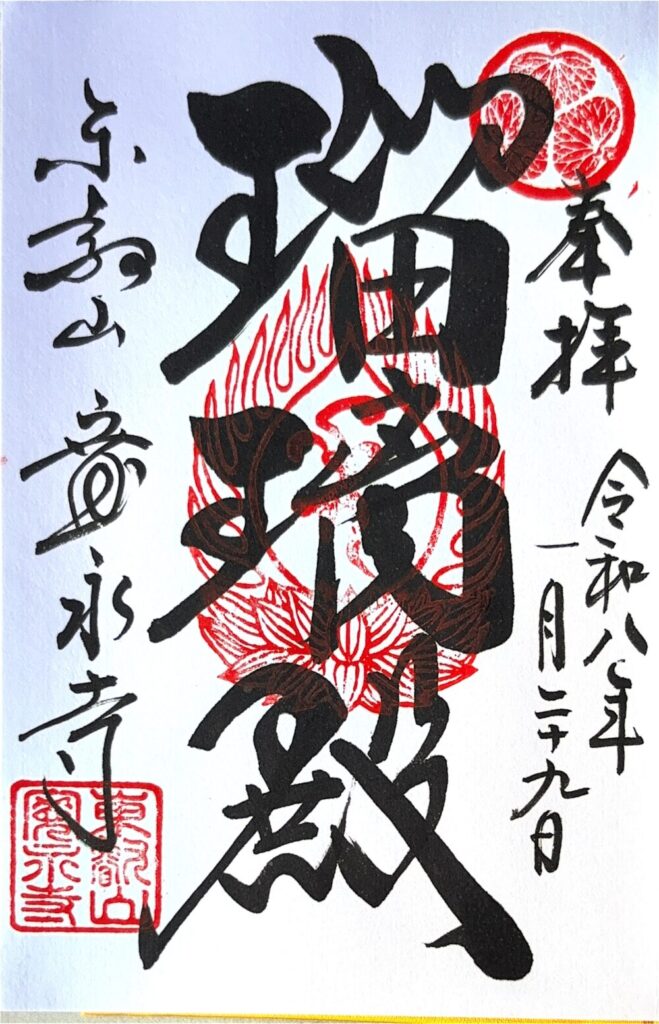 奉拝
令和八年
一月二十九日
瑠璃殿
東叡山 寛永寺
東叡山
寛永寺